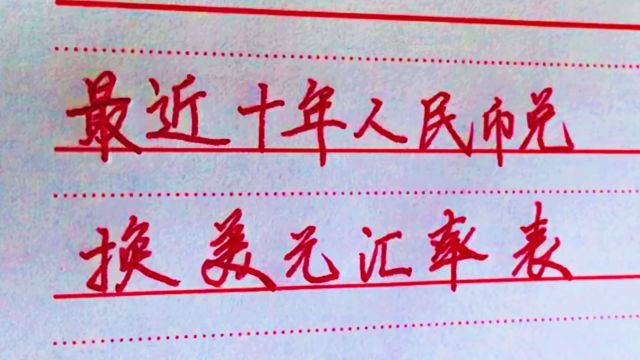 最近十年人民币兑
换美元汇率表